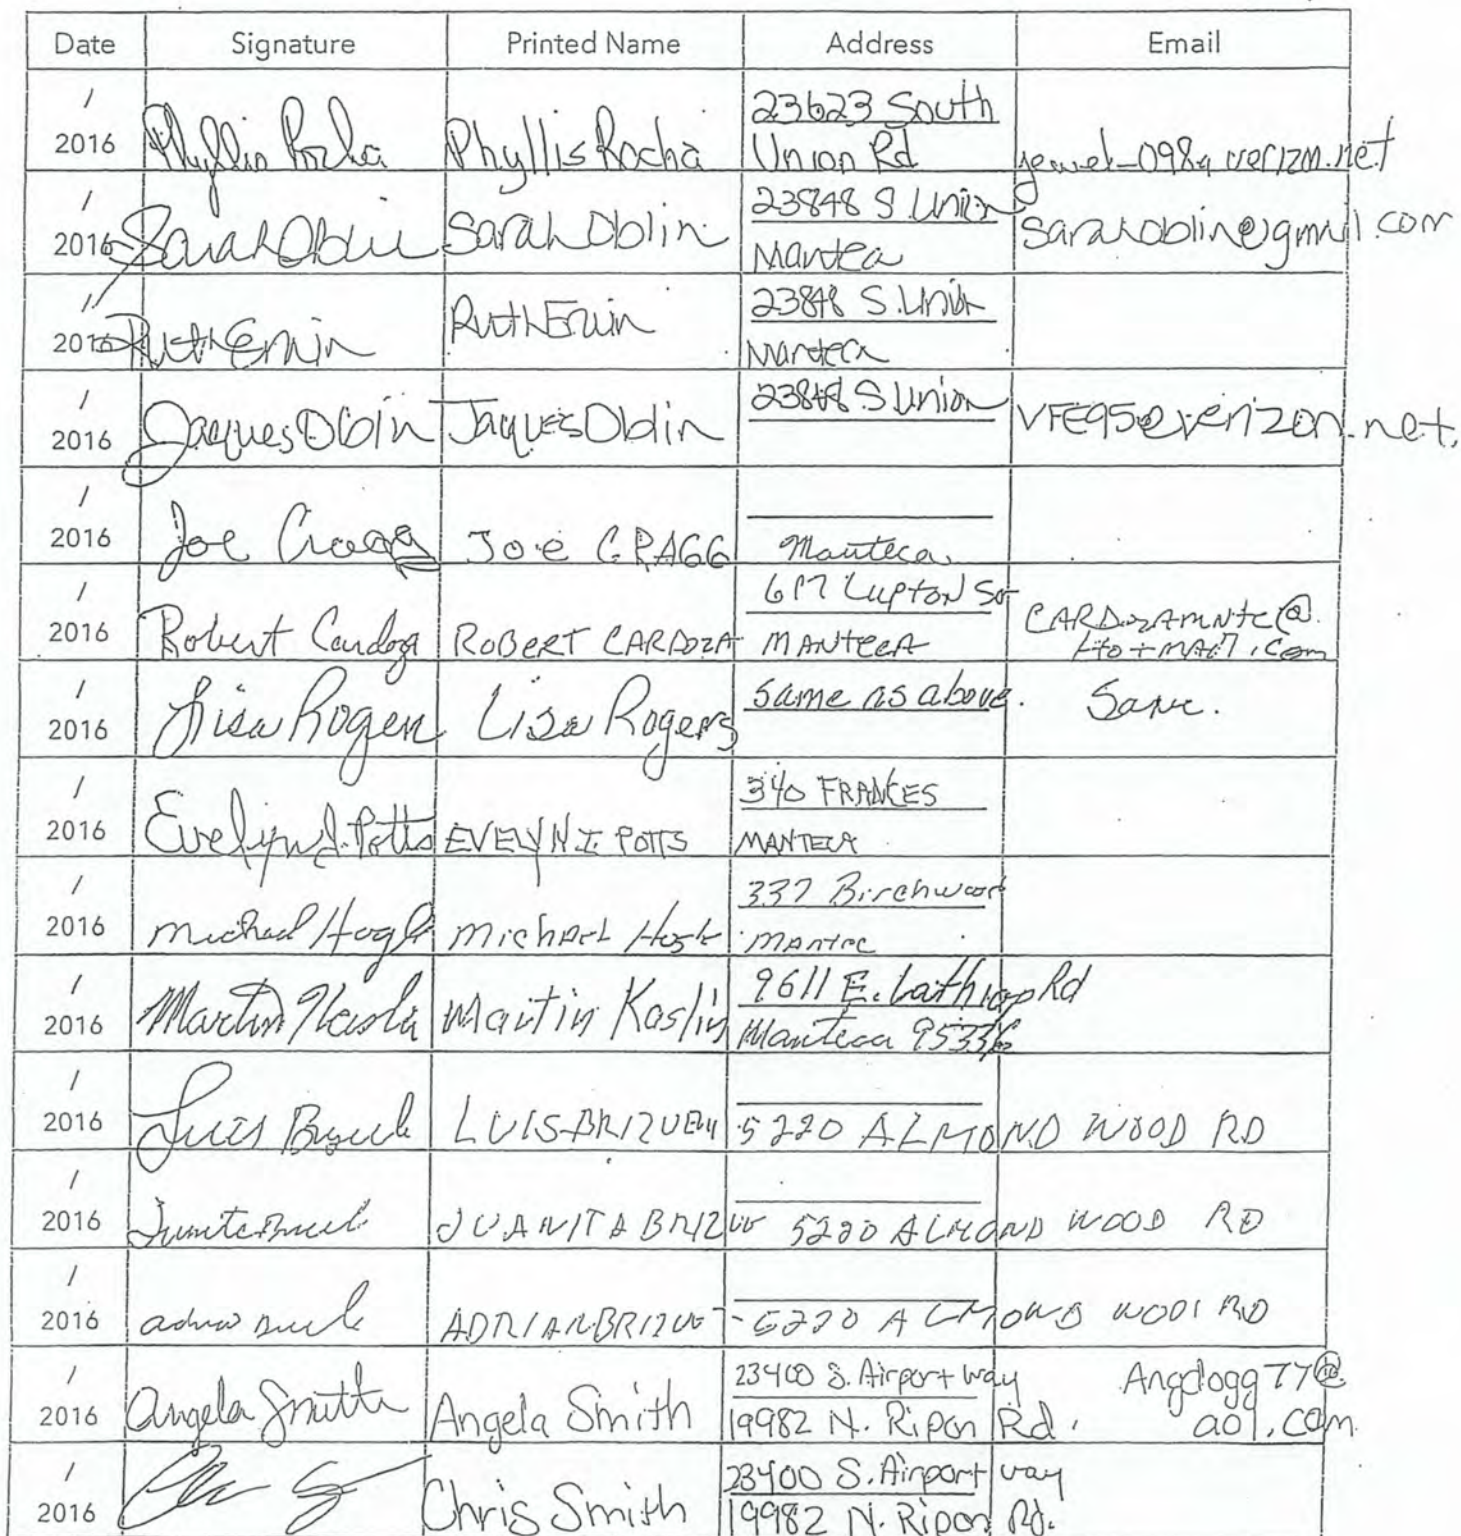 Date Signature Printed Name Address Email
/
2016 Phyllis Rocha Phyllis Rocha 23623 South
Union Rd
/
2016 Sarah Oblin Sarah Oblin 23848 S Union
Manteca sarahoblin@gmail.com
/
2016 Ruth Erwin Ruth Erwin 23848 S. Union
Manteca
/
2016 Jaques Oblin Jaques Oblin 23848 S Union VFE95@verizon.net.
/
2016 Joe Cragg Joe CRAGG Manteca
/
2016 Robert Cardoza ROBERT CARDOZA 617 Lupton
MANTECA CARDozAmntc@
Hotmail.com
/
2016 Lisa Rogers Lisa Rogers same as above. Same.
/
2016 Evelyn I. Potts EVELYN I. POTTS 340 FRANCES
MANTECA
/
2016 Michael Hogle Michael 337 Birchwood
/
2016 Martin Martin Koslin 9611 E. Lathrop Rd
Manteca 95336
/
2016 Luis LUIS 5220 ALMOND WOOD RD
/
2016 JUANITA 5220 ALMOND WOOD RD
/
2016 ADRIAN 5220 ALMOND WOOD RD
/
2016 Angela Smith Angela Smith 23400 S. Airport way
19982 N. Ripon Rd. Angdogg77@
aol.com
/
2016 Chris Smith 23400 S. Airport way
19982 N. Ripon Rd.